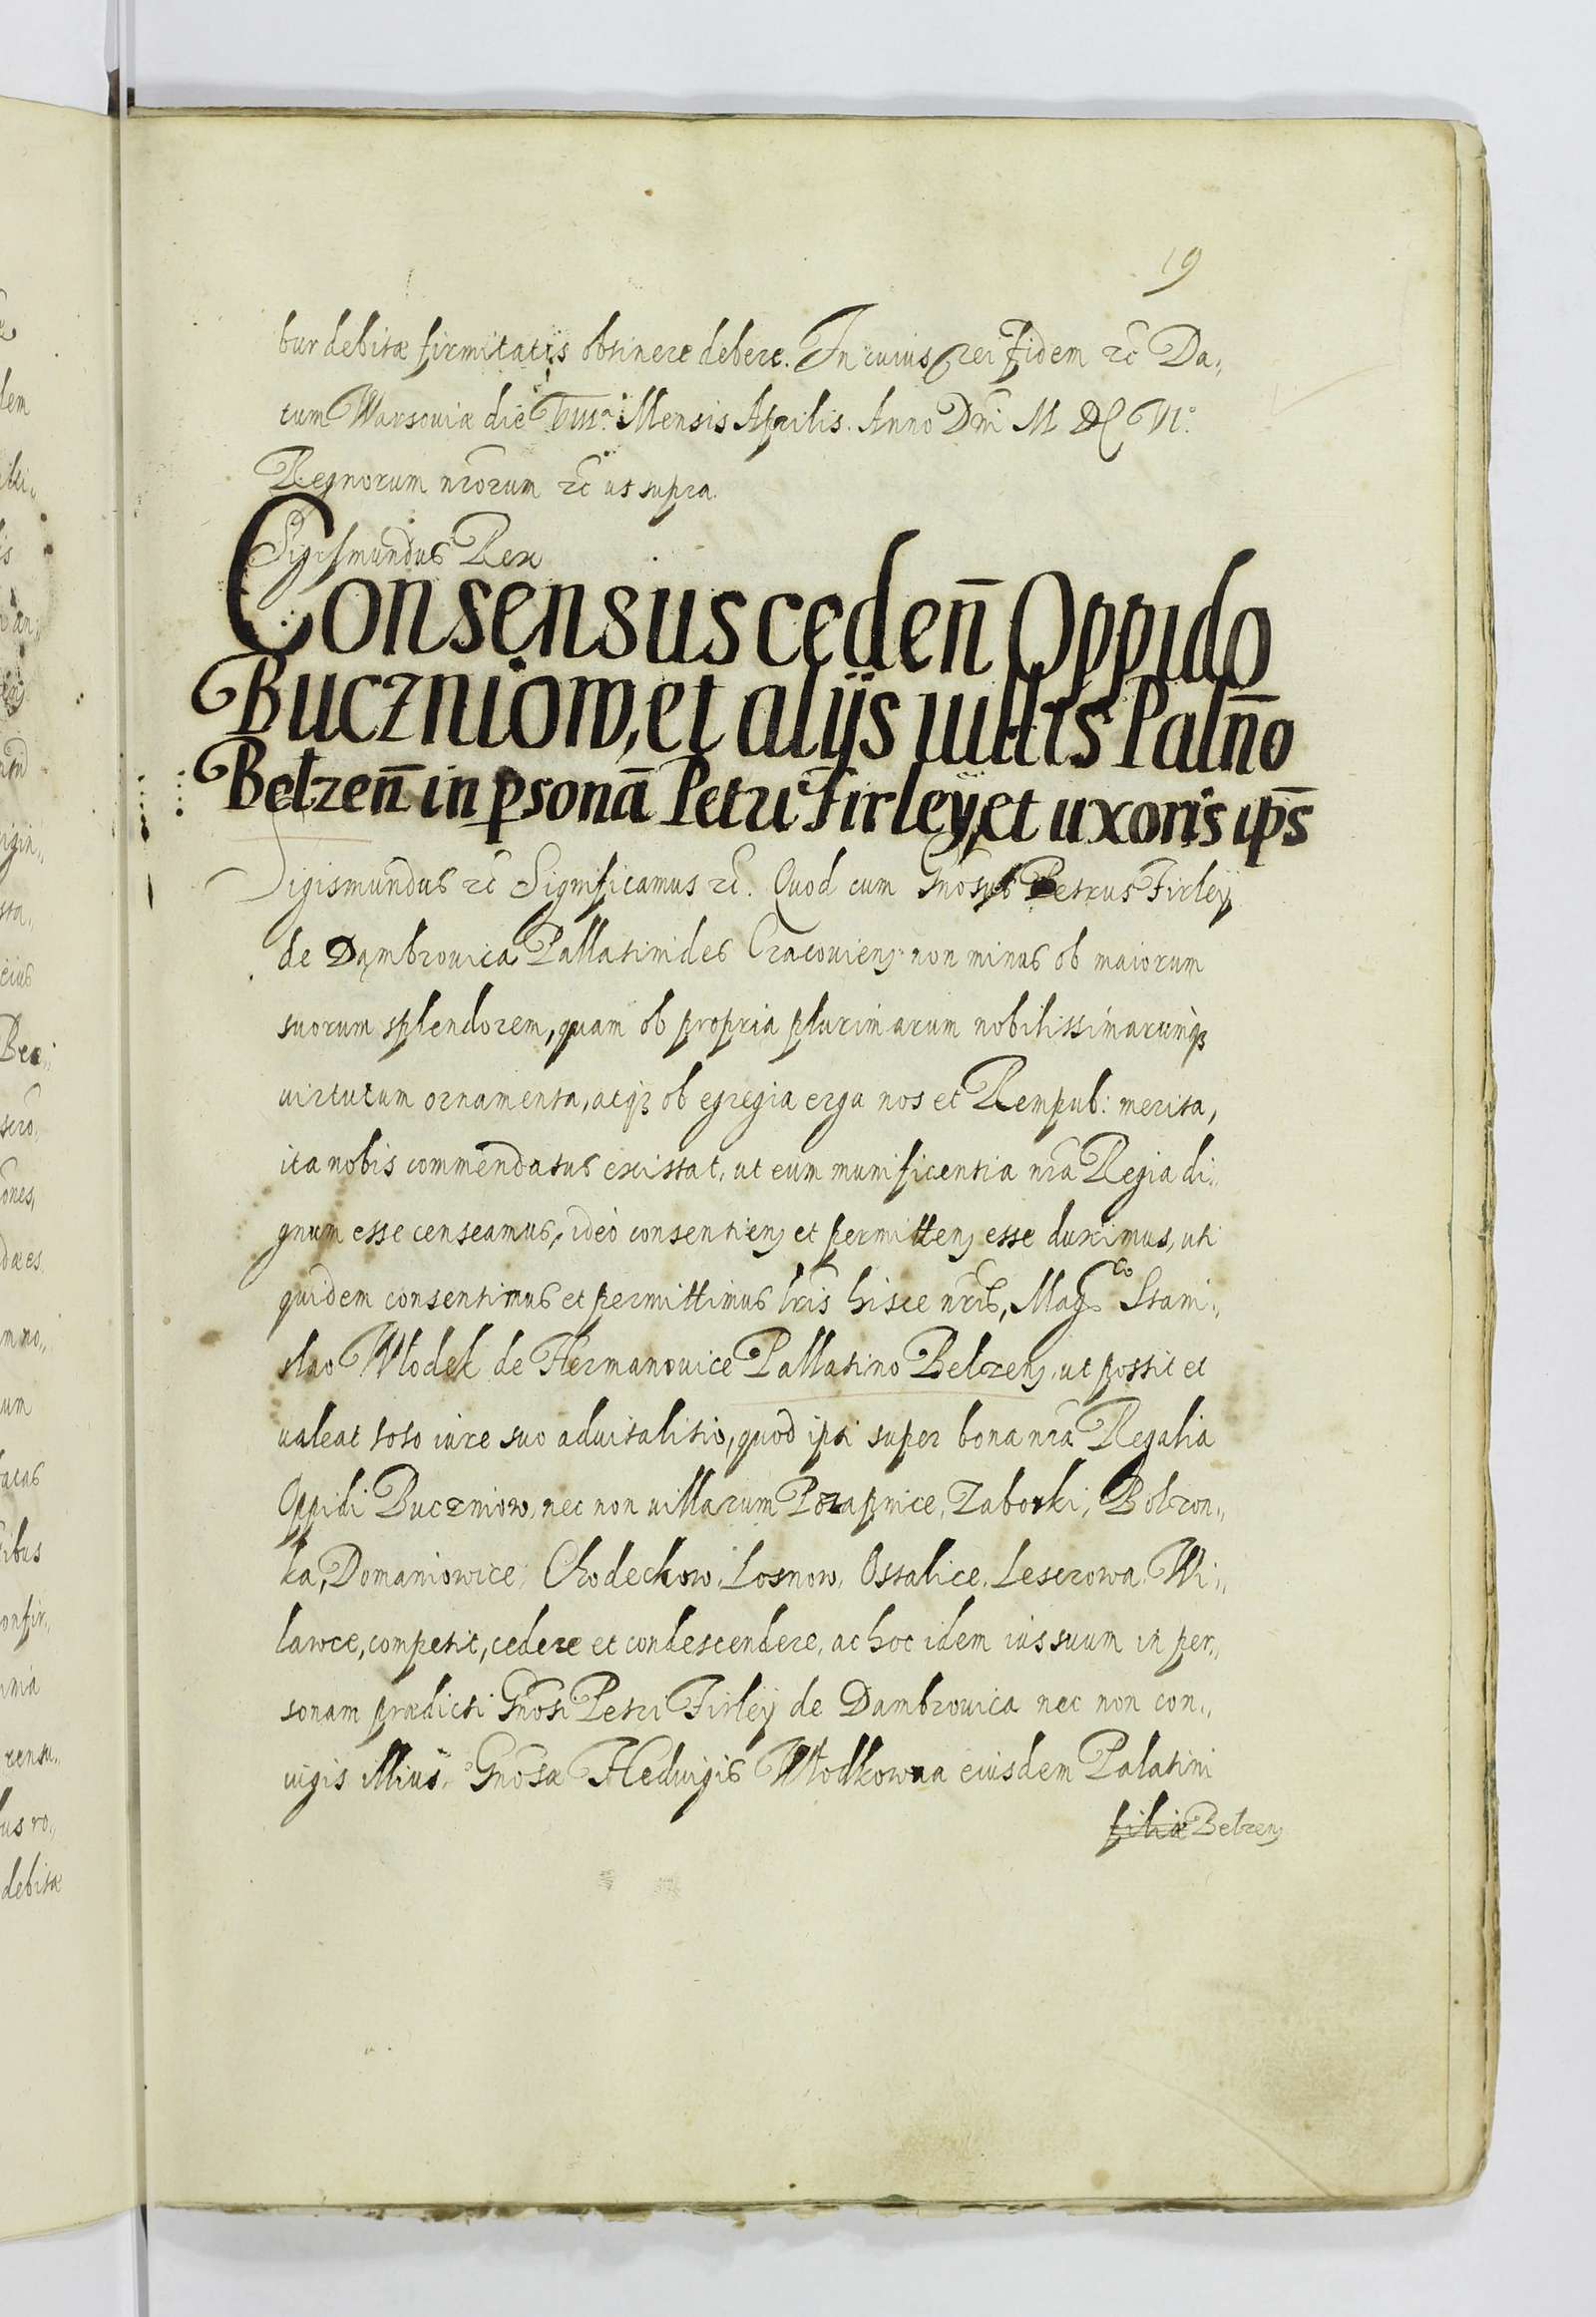 19
bur debitæ firmitatis obtinere debere. In cuius rei fidem ꝛc Da„
tum Warsoviæ die VIIIa Mensis Aprilis. Anno Dn̄i M DC VIo.
Regnorum nr̄orum ꝛc ut supra.
Sigismundus Rex
Consensus ceden̄ Oppido
Buczniow, et alijs uillis Paln̄o
Belzen̄ in ꝑsonā Petri Firley, et uxoris ip̄s
Sigismundus ꝛc Significamus ꝛc. Quod cum Gn̄osus Petrus Firleÿ
de Dąmbrouica Pallatinides Cracouienꝭ non minus ob maiorum
suorum splendorem, quam ob propria plurimarum nobilissimarumqꝫ
uirtutum ornamenta, atqꝫ ob egregia erga nos et Rempub: merita,
ita nobis commendatus existat, ut eum munificentia nr̄a Regia di„
gnum esse censeamus, ideò consentienꝭ et permittenꝭ esse duximus, uti
quidem consentimus et permittimus lr̄is hisce nr̄is, Magco Stani„
slao Włodek de Hermanouice Pallatino Belzenꝭ, ut possit et
ualeat toto iure suo aduitalitio, quod ipsi super bona nr̄a Regalia
Oppidi Buczniow, nec non uillarum Pozapnice, Zaborki, Bolzon„
ka, Domaniowice, Chodeckow, Losnow, Ostalice, Leserowa, Wi„
lawce, competit, cedere et condescendere, ac hoc idem ius suum in per„
sonam prædicti Gn̄osi Petri Firleÿ de Dambrouica nec non con„
uigis illius, Gn̄osæ Heduigis Włodkowna eiusdem Palatini
filiæ Belzenꝭ